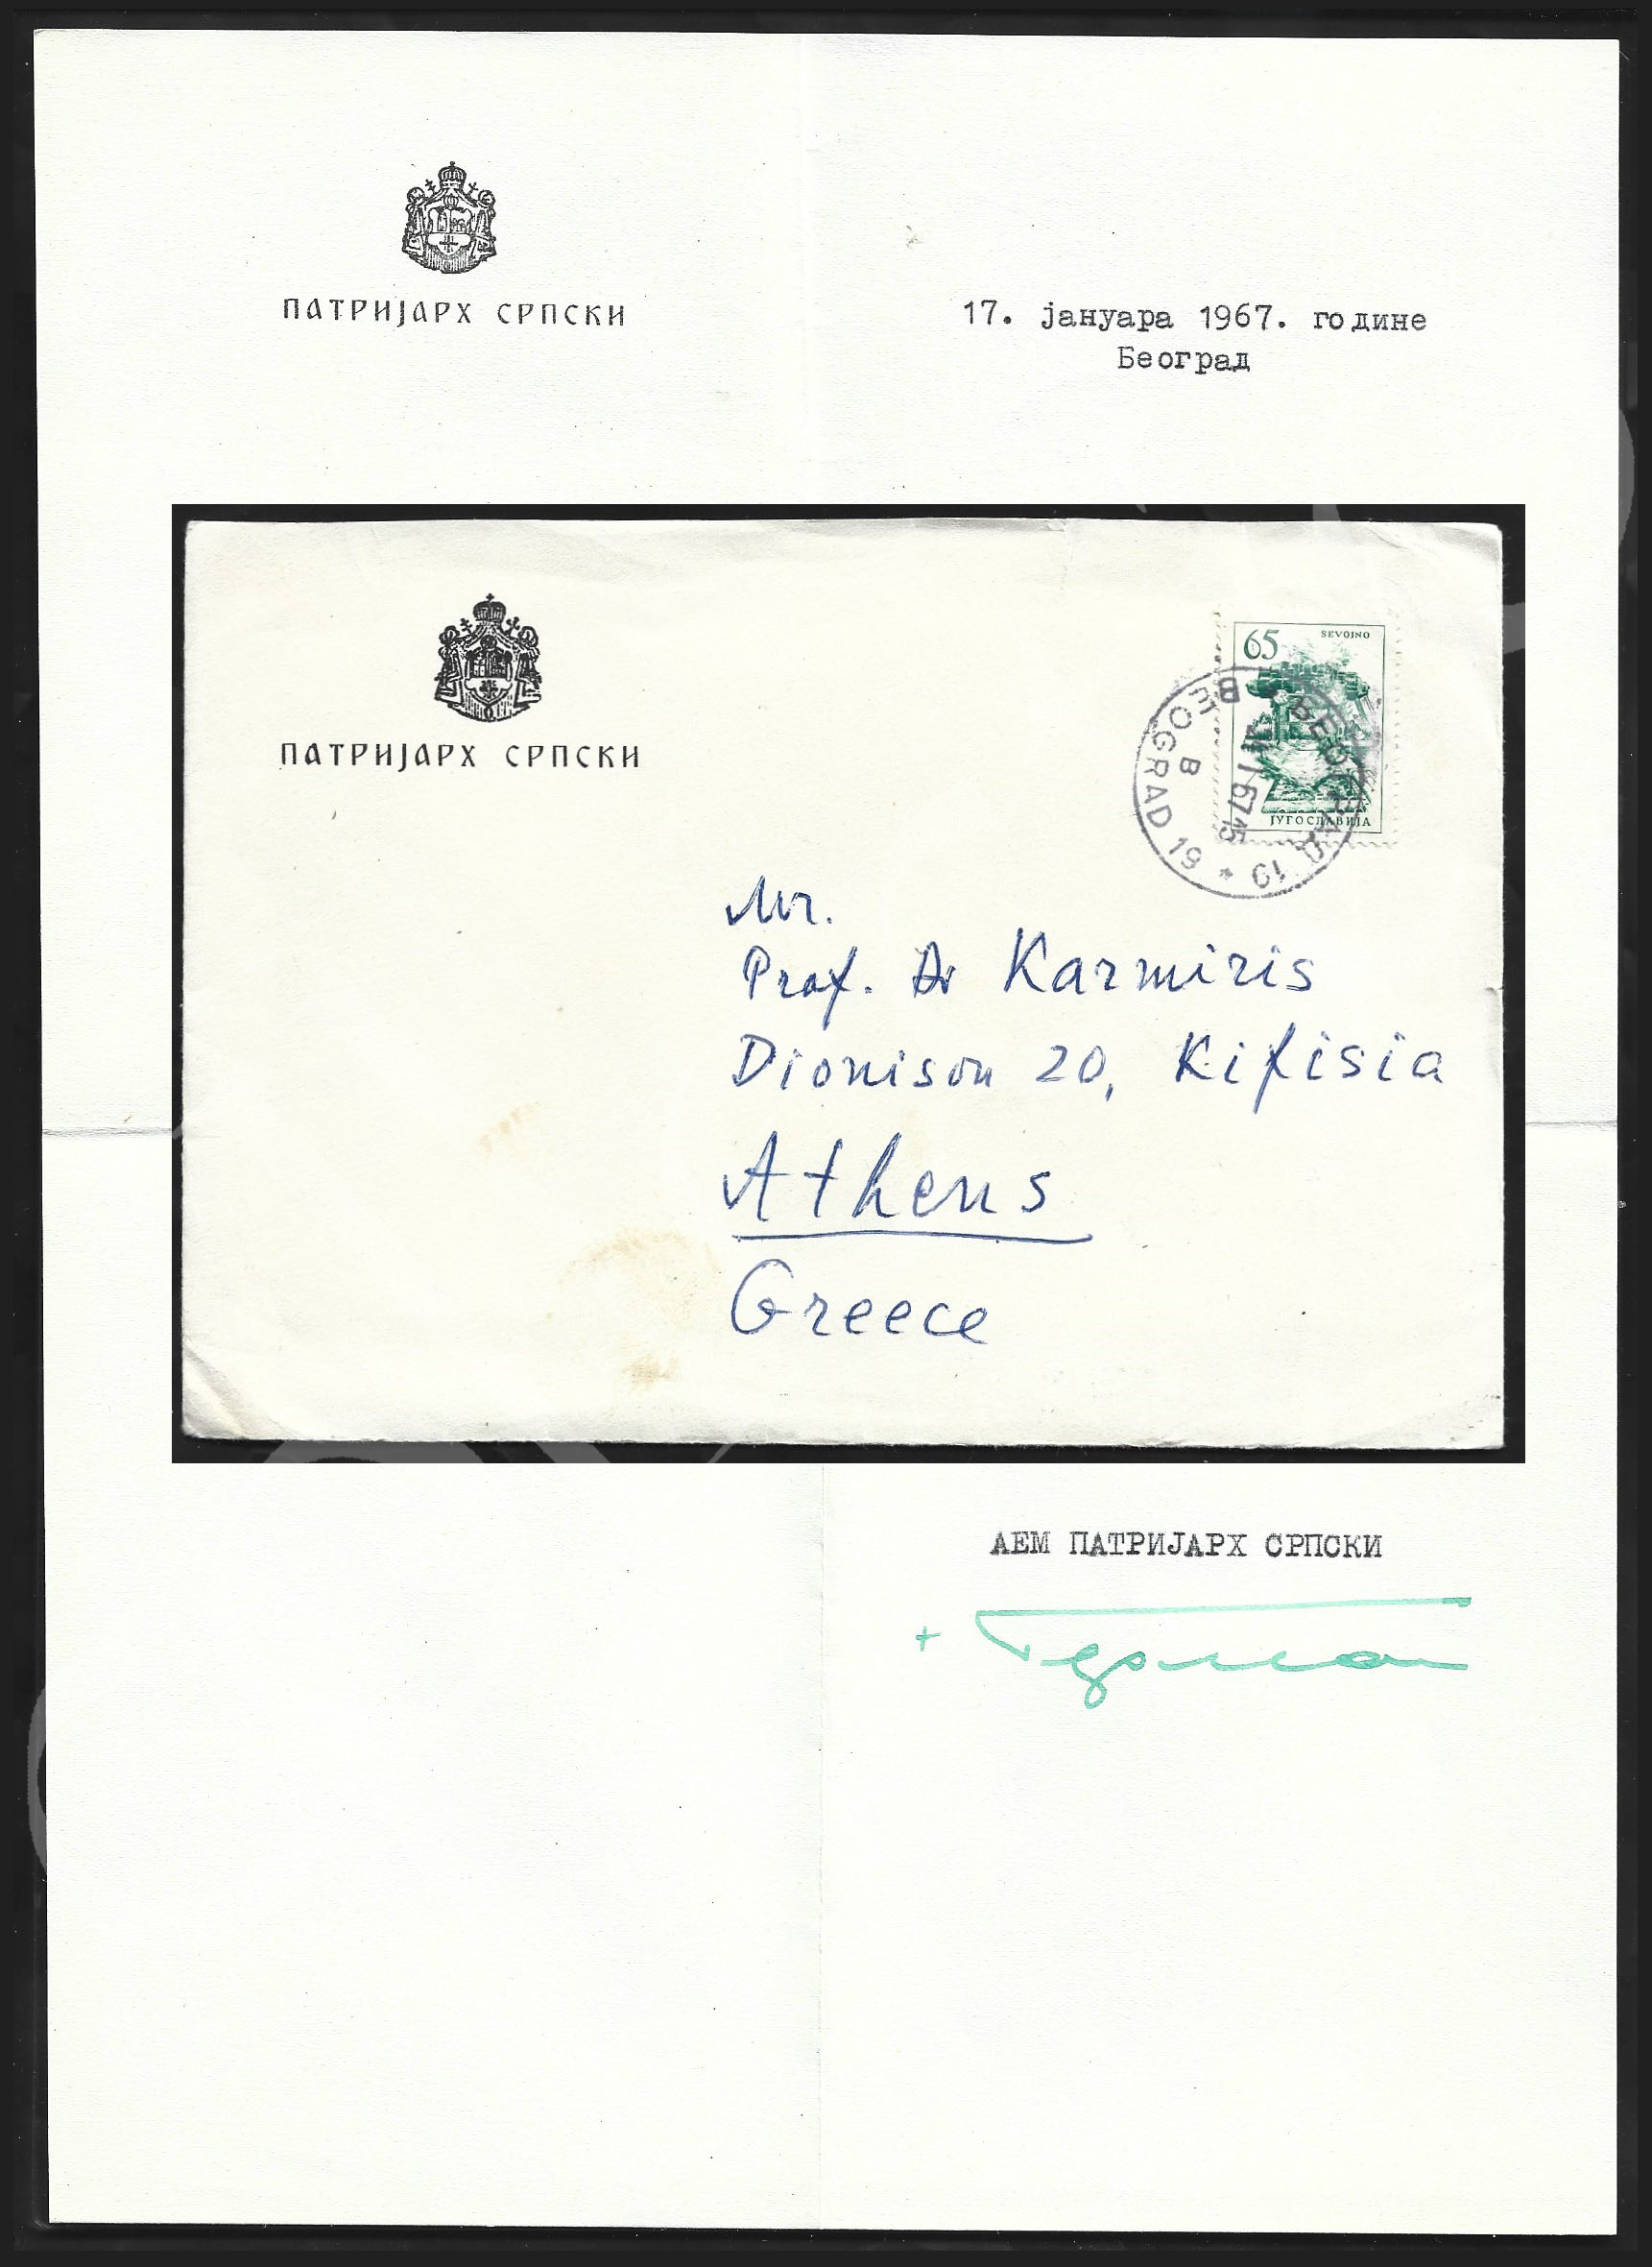 ПАТРИЈАРХ СРПСКИ
17. јануара 1967. године
Београд
ПАТРИЈАРХ СРПСКИ
65 SEVOJNO
ЈУГОСЛАВИЈА
БЕОГРАД 19 * BEOGRAD 19
B
Mr.
Prof. Dr Karmiris
Dionison 20, Kifisia
Athens
Greece
АЕМ ПАТРИЈАРХ СРПСКИ
+ Герман